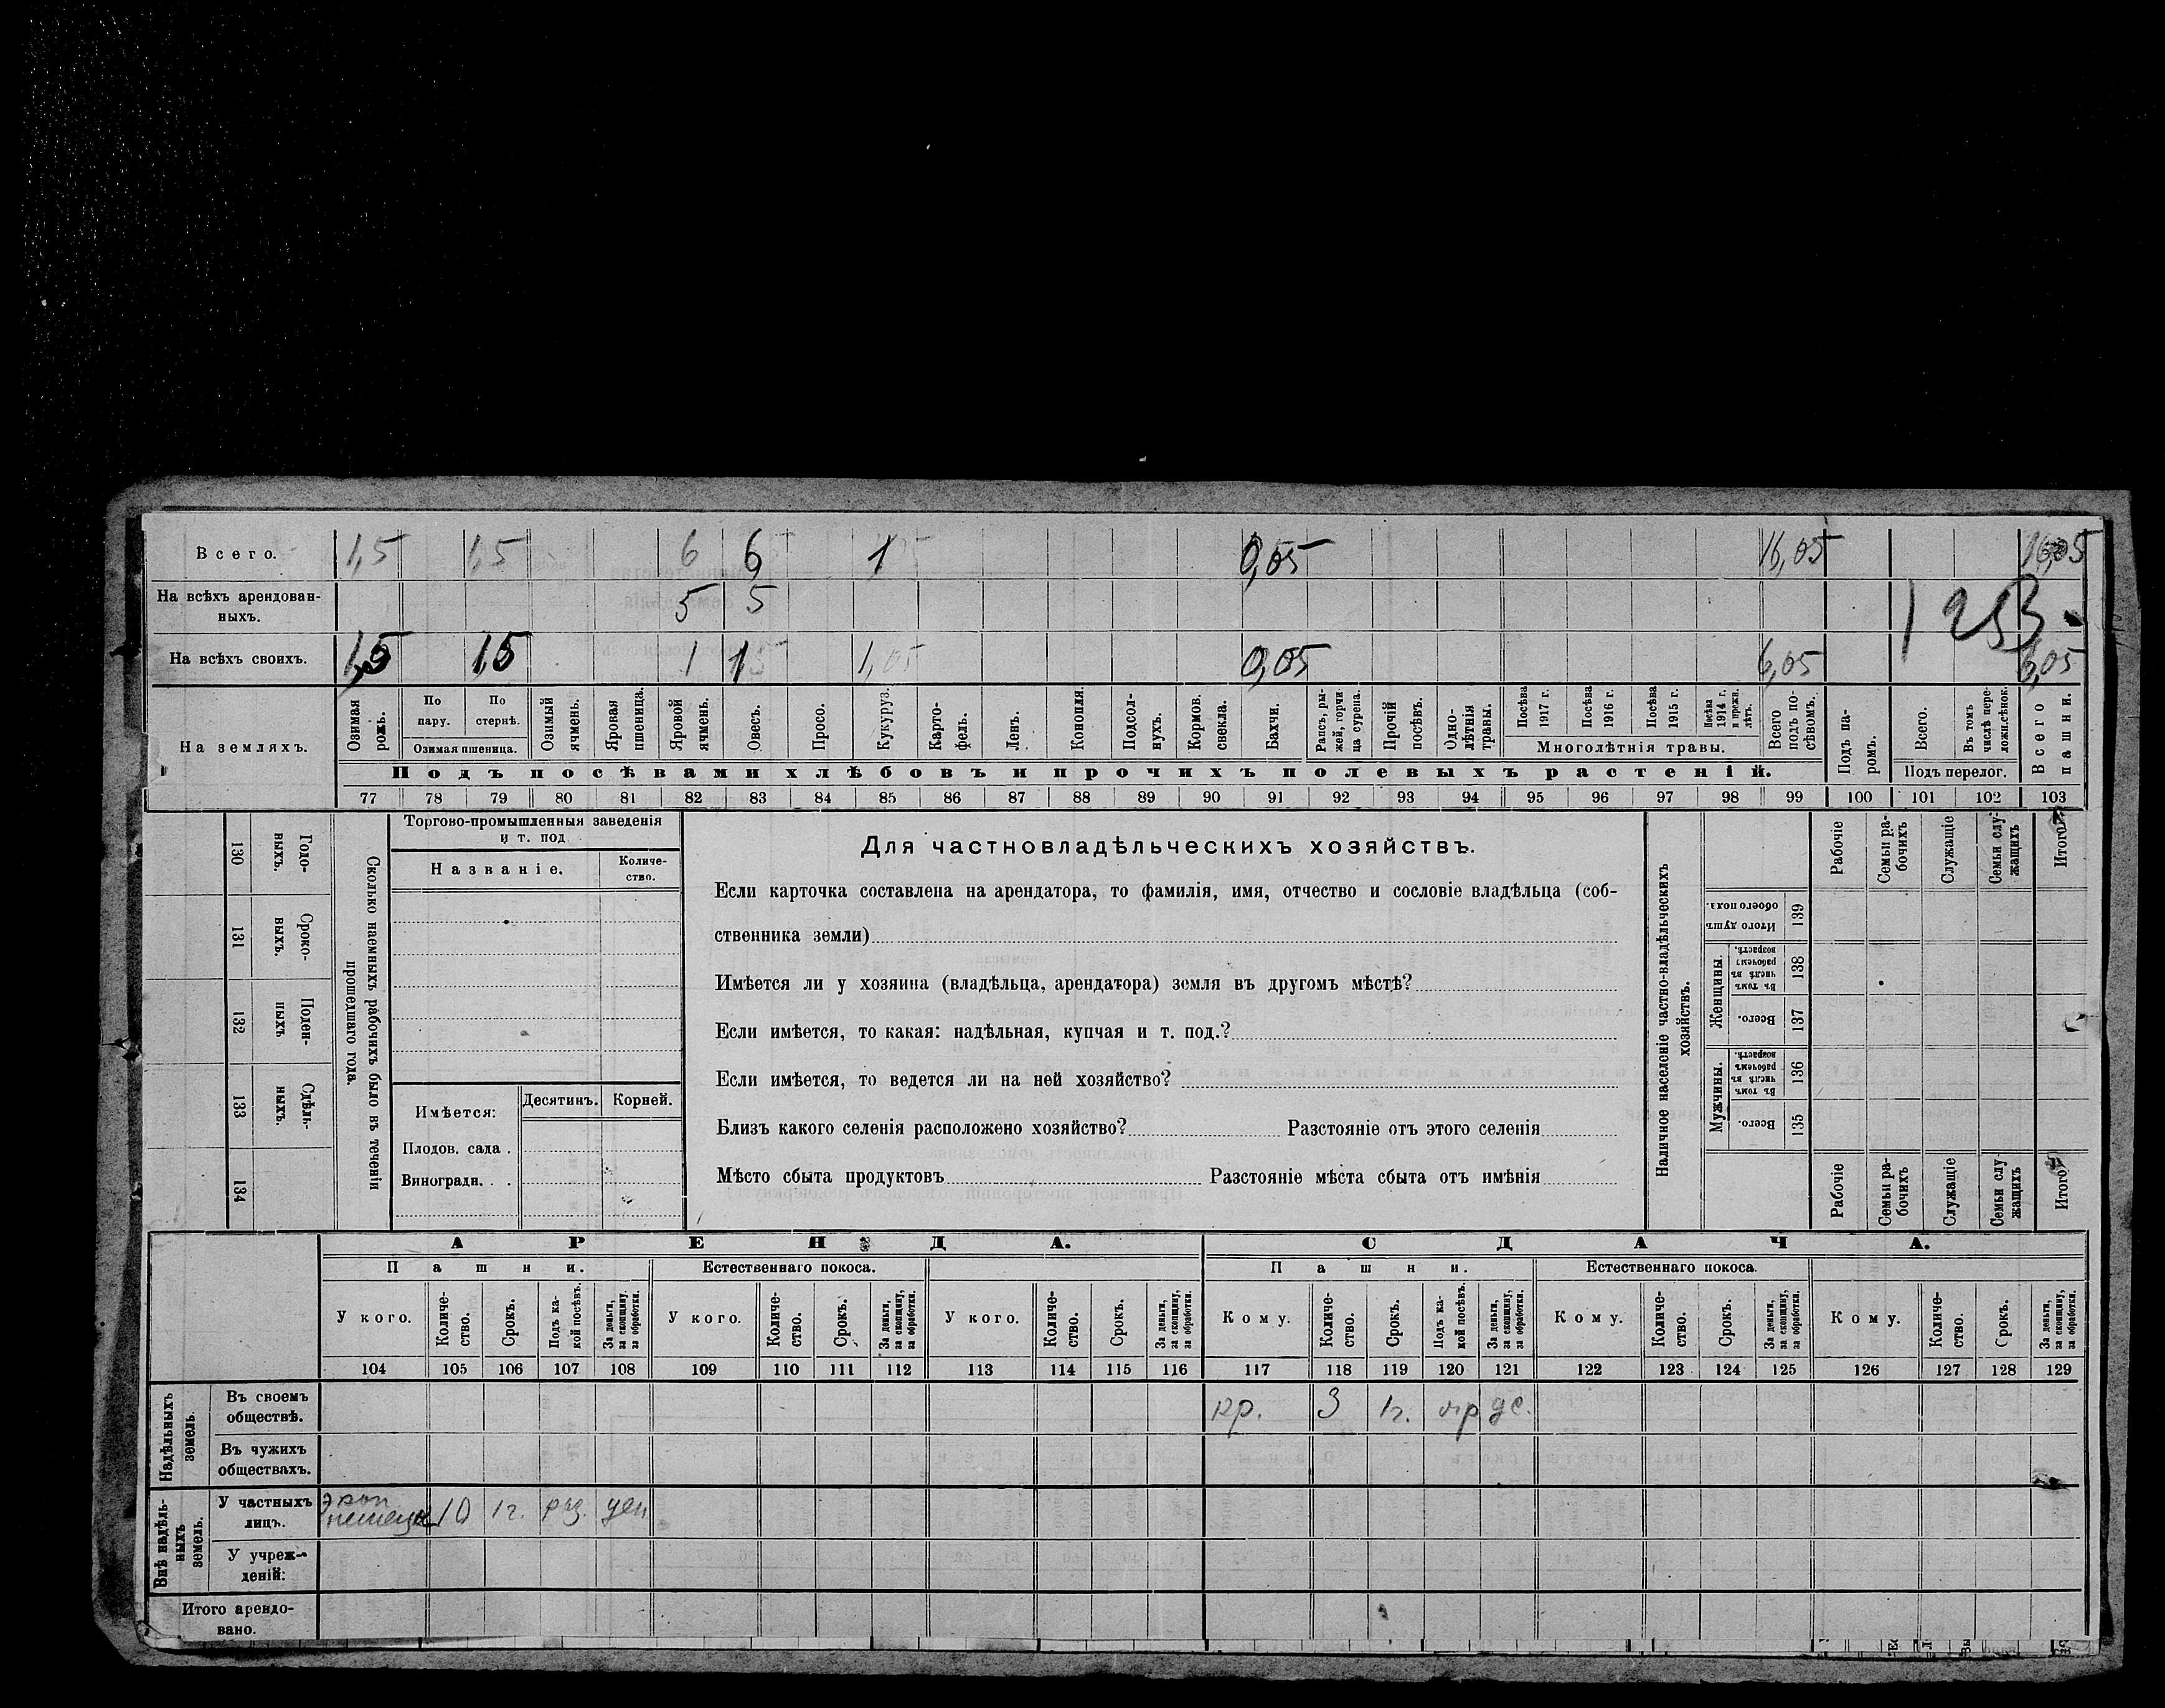 Всего. 1,5 1,5 6 6 1 0,05 16,05 16,05
На всѣхъ арендован-
ныхъ. 5 5
1253
На всѣхъ своихъ. 1,5 1,5 1 1 1,05 0,05 6,05 6,05
На земляхъ.
Озимая рожь.
По пару.
По стернѣ.
Озимая пшеница.
Озимый ячмень.
Яровая пшеница.
Яровой ячмень.
Овесъ.
Просо.
Кукуруз.
Карто-
фель.
Ленъ.
Конопля.
Подсол-
нухъ.
Кормов. свекла.
Бахчи.
Рапсъ, ры-
жей, горчи-
ца сурепа.
Прочій посѣвъ.
Одно-
лѣтнія травы.
Посѣва 1917 г.
Посѣва 1916 г.
Посѣва 1915 г.
Посѣва 1914 г. и прежн. лѣтъ.
Многолѣтнія травы.
Всего подъ по-
сѣвомъ.
Подъ па-
ромъ.
Всего.
Въ томъ числѣ пере-
ложн.сѣнок.
Подъ перелог.
Всего пашни.
Подъ посѣвами хлѣбовъ и прочихъ полевыхъ растеній.
77 78 79 80 81 82 83 84 85 86 87 88 89 90 91 92 93 94 95 96 97 98 99 100 101 102 103
130 Годо-
ныхъ.
131 Сроко-
выхъ.
132 Поден-
ныхъ
133 Сдѣль-
ныхъ.
134
Сколько наемныхъ рабочихъ было въ теченіи
прошедшаго года.
Торгово-промышленныя заведенія
и т. под
Названіе.
Количе-
ство.
Имѣется: Десятинъ. Корней.
Плодов. сада .
Виноградн. . .
Для частновладѣльческихъ хозяйствъ.
Если карточка составлена на арендатора, то фамилія, имя, отчество и сословіе владѣльца (соб-
ственника земли)
Имѣется ли у хозяина (владѣльца, арендатора) земля въ другомъ мѣстѣ?
Если имѣется, то какая: надѣльная, купчая и т. под.?
Если имѣется, то ведется ли на ней хозяйство?
Близъ какого селенія расположено хозяйство? Разстояніе отъ этого селенія
Мѣсто сбыта продуктовъ Разстояніе мѣста сбыта отъ имѣнія
Наличное населеніе частно-владѣльческихъ
хозяйствъ.
Рабочіе
Семьи ра-
бочихъ
Служащіе
Семьи слу-
жащихъ
Итого
Итого душъ обоего пола. 139
Женщины.
Въ томъ числѣ въ рабочемъ возрастѣ. 138
Всего. 137
Мужчины.
Въ томъ числѣ въ рабочемъ возрастѣ. 136
Всего. 135
Рабочіе
Семьи ра-
бочихъ
Служащіе
Семьи слу-
жащихъ
Итого
АРЕНДА. СДАЧА.
Пашни. Естественнаго покоса. Пашни. Естественнаго покоса.
У кого.
Количе-
ство.
Срокъ.
Подъ ка-
кой посѣвъ.
За деньги, за скопщину, за обработки.
У кого.
Количе-
ство.
Срокъ.
За деньги, за скопщину, за обработки.
У кого.
Количе-
ство.
Срокъ.
За деньги, за скопщину, за обработки.
Кому.
Количе-
ство.
Срокъ.
Подъ ка-
кой посѣвъ.
За деньги, за скопщину, за обработки.
Кому.
Количе-
ство.
Срокъ.
За деньги, за скопщину, за обработки.
Кому.
Количе-
ство.
Срокъ.
За деньги, за скопщину, за обработки.
104 105 106 107 108 109 110 111 112 113 114 115 116 117 118 119 120 121 122 123 124 125 126 127 128 129
Надѣльныхъ
земель.
Въ своемъ
обществѣ. кр. 3 1г.
Въ чужихъ
обществахъ.
Внѣ надѣль-
ныхъ
земель.
У частныхъ
лицъ. 10 1г. раз. ден
У учреж-
деній:
Итого арендо-
вано.